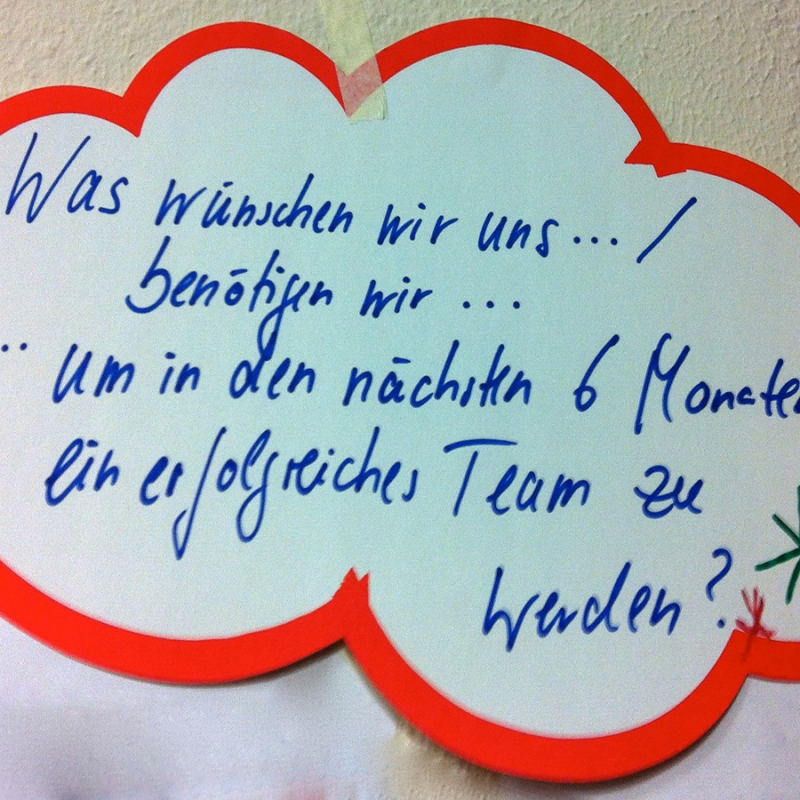 Was wünschen wir uns ... /
benötigen wir ...
.. um in den nächsten 6 Monaten
ein erfolgreiches Team zu
werden?